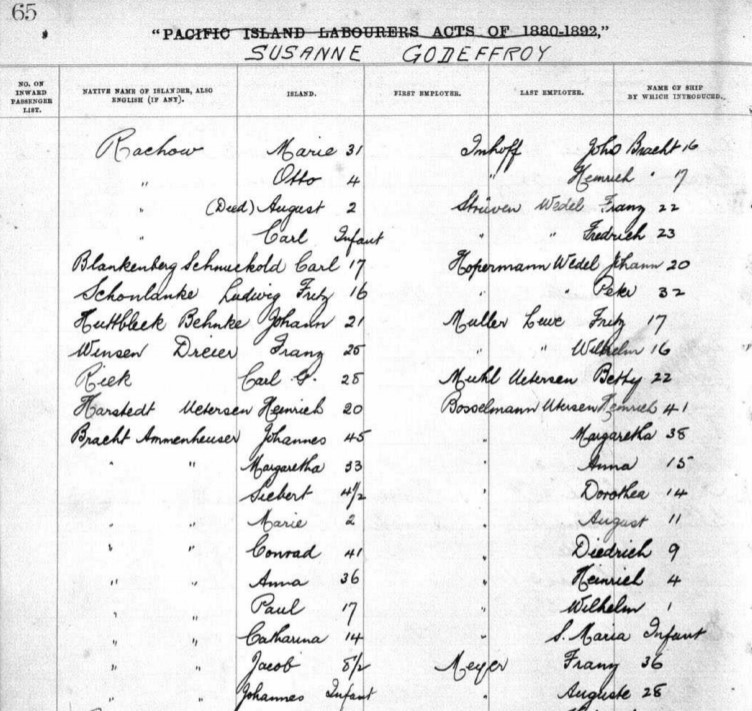 65
"PACIFIC ISLAND LABOURERS ACTS OF 1880-1892,"
SUSANNE GODEFFROY
NO. ON INWARD PASSENGER LIST.
NATIVE NAME OF ISLANDER, ALSO ENGLISH (IF ANY).
ISLAND.
FIRST EMPLOYER.
LAST EMPLOYER.
NAME OF SHIP BY WHICH INTRODUCED.
Rachow Marie 31 Imhoff Johs Bracht 16
" Otto 4 " Heinrich " 17
" (Died) August 2 Strüven Wedel Franz 22
" Carl Infant " " Fredrich 23
Blankenberg Schmuckold Carl 17 Hopermann Wedel Johann 20
Schonlanke Ludwig Fritz 16 " " Peter 32
Huttbleck Behnke Johann 21 Muller Fritz 17
Winsen Dreier Franz 25 " " Wilhelm 16
Riek Carl G. 28 Muhl Uetersen Betty 22
Harstedt Uetersen Heinrich 20 Bosselmann Utersen Heinrich 41
Bracht Ammenheuser Johannes 45 " Margaretha 38
" " Margaretha 33 " Anna 15
Siebert 4½ " Dorothea 14
" " Marie 2 " August 11
" " Conrad 41 " Diedrich 9
" " Anna 36 " Heinrich 4
" " Paul 17 " Wilhelm 1
" " Catharina 14 " S. Maria Infant
" " Jacob 8½ Meyer Franz 36
" " Johannes Infant " Auguste 28